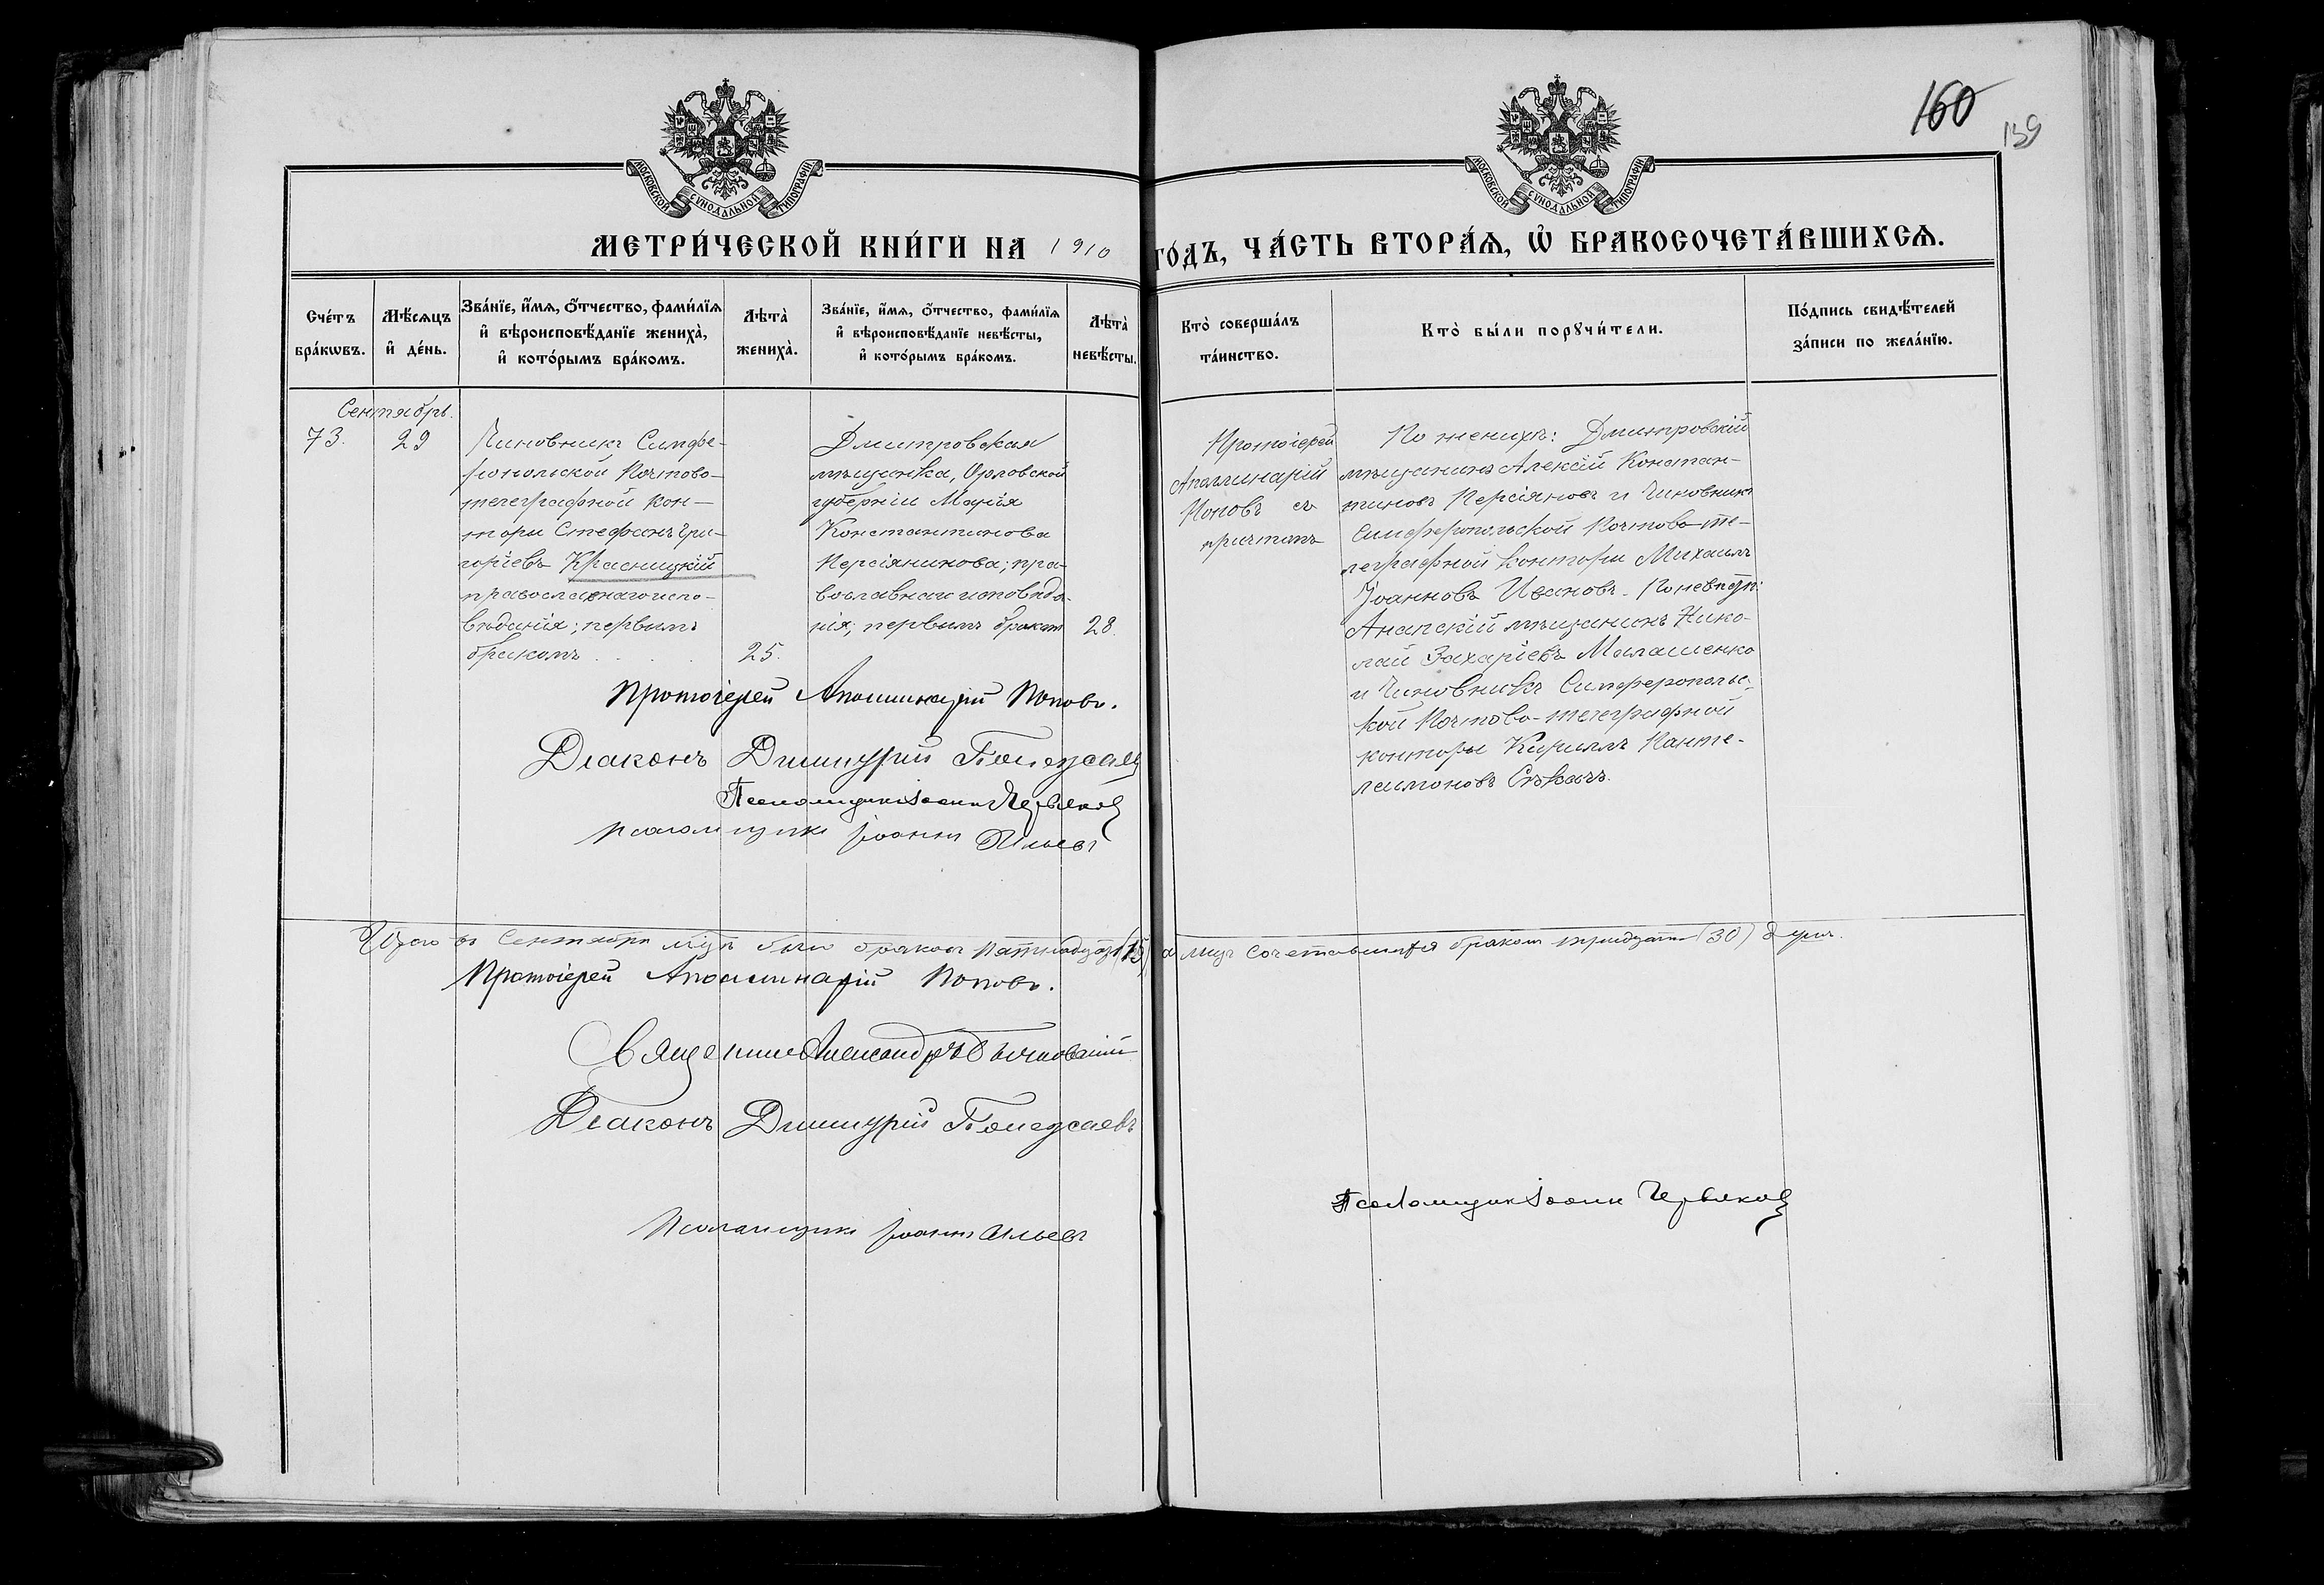 160
159
МОСКОВСКОЙ СѴНОДАЛЬНОЙ ТИПОГРАФІИ
МОСКОВСКОЙ СѴНОДАЛЬНОЙ ТИПОГРАФІИ
МЕТРИ́ЧЕСКОЙ КНИ́ГИ НА 1910 ГО́ДЪ, ЧА́СТЬ ВТОРА́Ѧ, Ѡ҆ БРАКОСОЧЕТА́ВШИХСѦ.
Сче́тъ
бра́кѡвъ.
Мѣ́сѧцъ
и҆ де́нь.
Зва́нїе, и҆́мѧ, ѻ҆́тчество, фами́лїѧ
и҆ вѣроисповѣ́данїе жениха̀,
и҆ кото́рымъ бра́комъ.
Лѣта̀
жениха̀.
Зва́нїе, и҆́мѧ, ѻ҆́тчество, фами́лїѧ
и҆ вѣроисповѣ́данїе невѣ́сты,
и҆ кото́рымъ бра́комъ.
Лѣта̀
невѣ́сты.
Кто̀ соверша́лъ
та́инство.
Кто̀ бы́ли порꙋчи́тели.
По́дпись свидѣ́телей
за́писи по жела́нїю.
Сентябрь.
73.
29
Чиновникъ Симфе-
ропольской Почтово-
телеграфной Кон-
торы Стефанъ Гри-
горіевъ Красницкій
православнаго испо-
вѣданія; первымъ
бракомъ . . . .
25.
Дмитровская
мѣщанка, Орловской
губерніи Марія
Константинова
Персіянинова; пра-
вославнаго исповѣда-
нія; первымъ бракомъ
28.
Протоіерей
Аполлинарій
Поповъ съ
причтомъ
По женихѣ: Дмитровскій
мѣщанинъ Алексій Констан-
тиновъ Персіяновъ и Чиновникъ
Симферопольской Почтово-те-
леграфной Конторы Михаилъ
Іоанновъ Ивановъ. По невѣстѣ:
Анапскій мѣщанинъ Нико-
лай Захаріевъ Малашенко
и Чиновникъ Симферопольс-
кой Почтово-телеграфной
конторы Кириллъ Панте-
леимоновъ Сѣкачъ.
Протоіерей Аполлинарій Поповъ.
Діаконъ Димитрій
Псаломщикъ Іоаннъ Червяковъ
Псаломщикъ Іоаннъ Ильевъ
Итого въ Сентябрѣ мцѣ было браковъ пятнадцать (15) а лицъ сочетавшихся бракомъ тридцать (30) душъ.
Протоіерей Аполлинарій Поповъ.
Священникъ Александръ
Діаконъ Димитрій
Псаломщикъ Іоаннъ Червяковъ
Псаломщикъ Іоаннъ Ильевъ